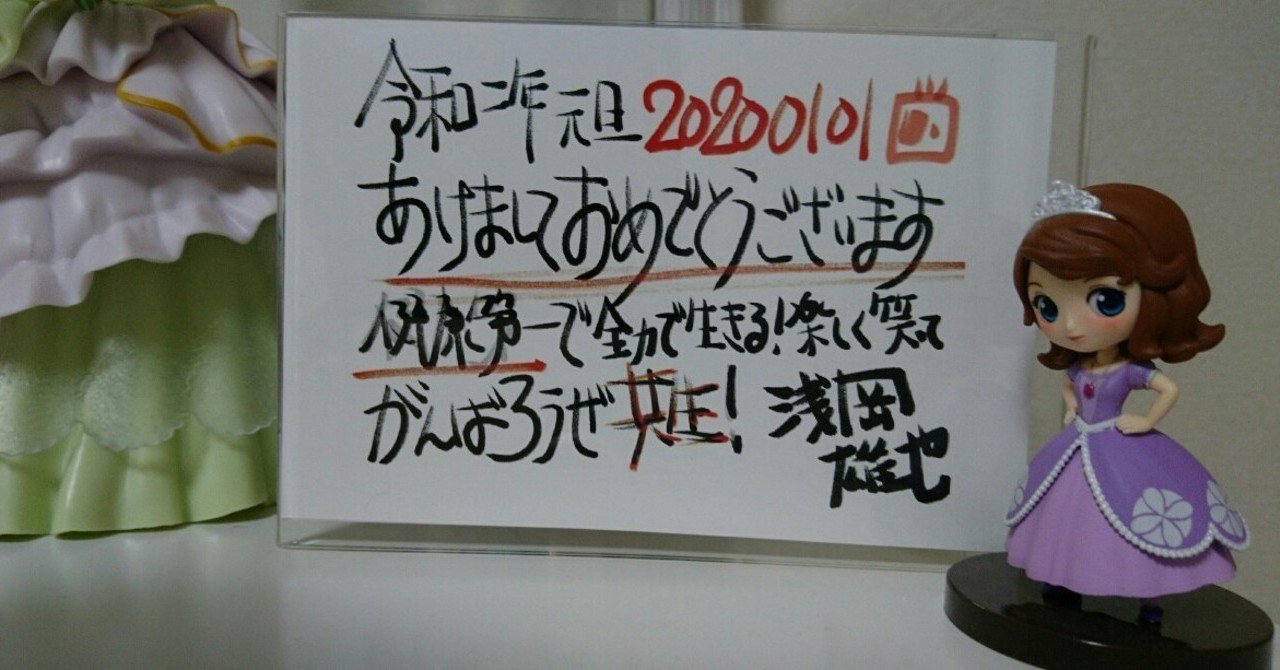 令和二年 元旦 20200101
あけましておめでとうございます
健康第一で全力で生きる!楽しく笑って
がんばろうぜ 共生! 浅岡
雄也